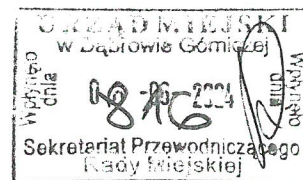 URZĄD MIEJSKI
w Dąbrowie Górniczej
Wpłynęło
dnia
2024
Wpłynęło
dnia
Sekretariat Przewodniczącego
Rady Miejskiej